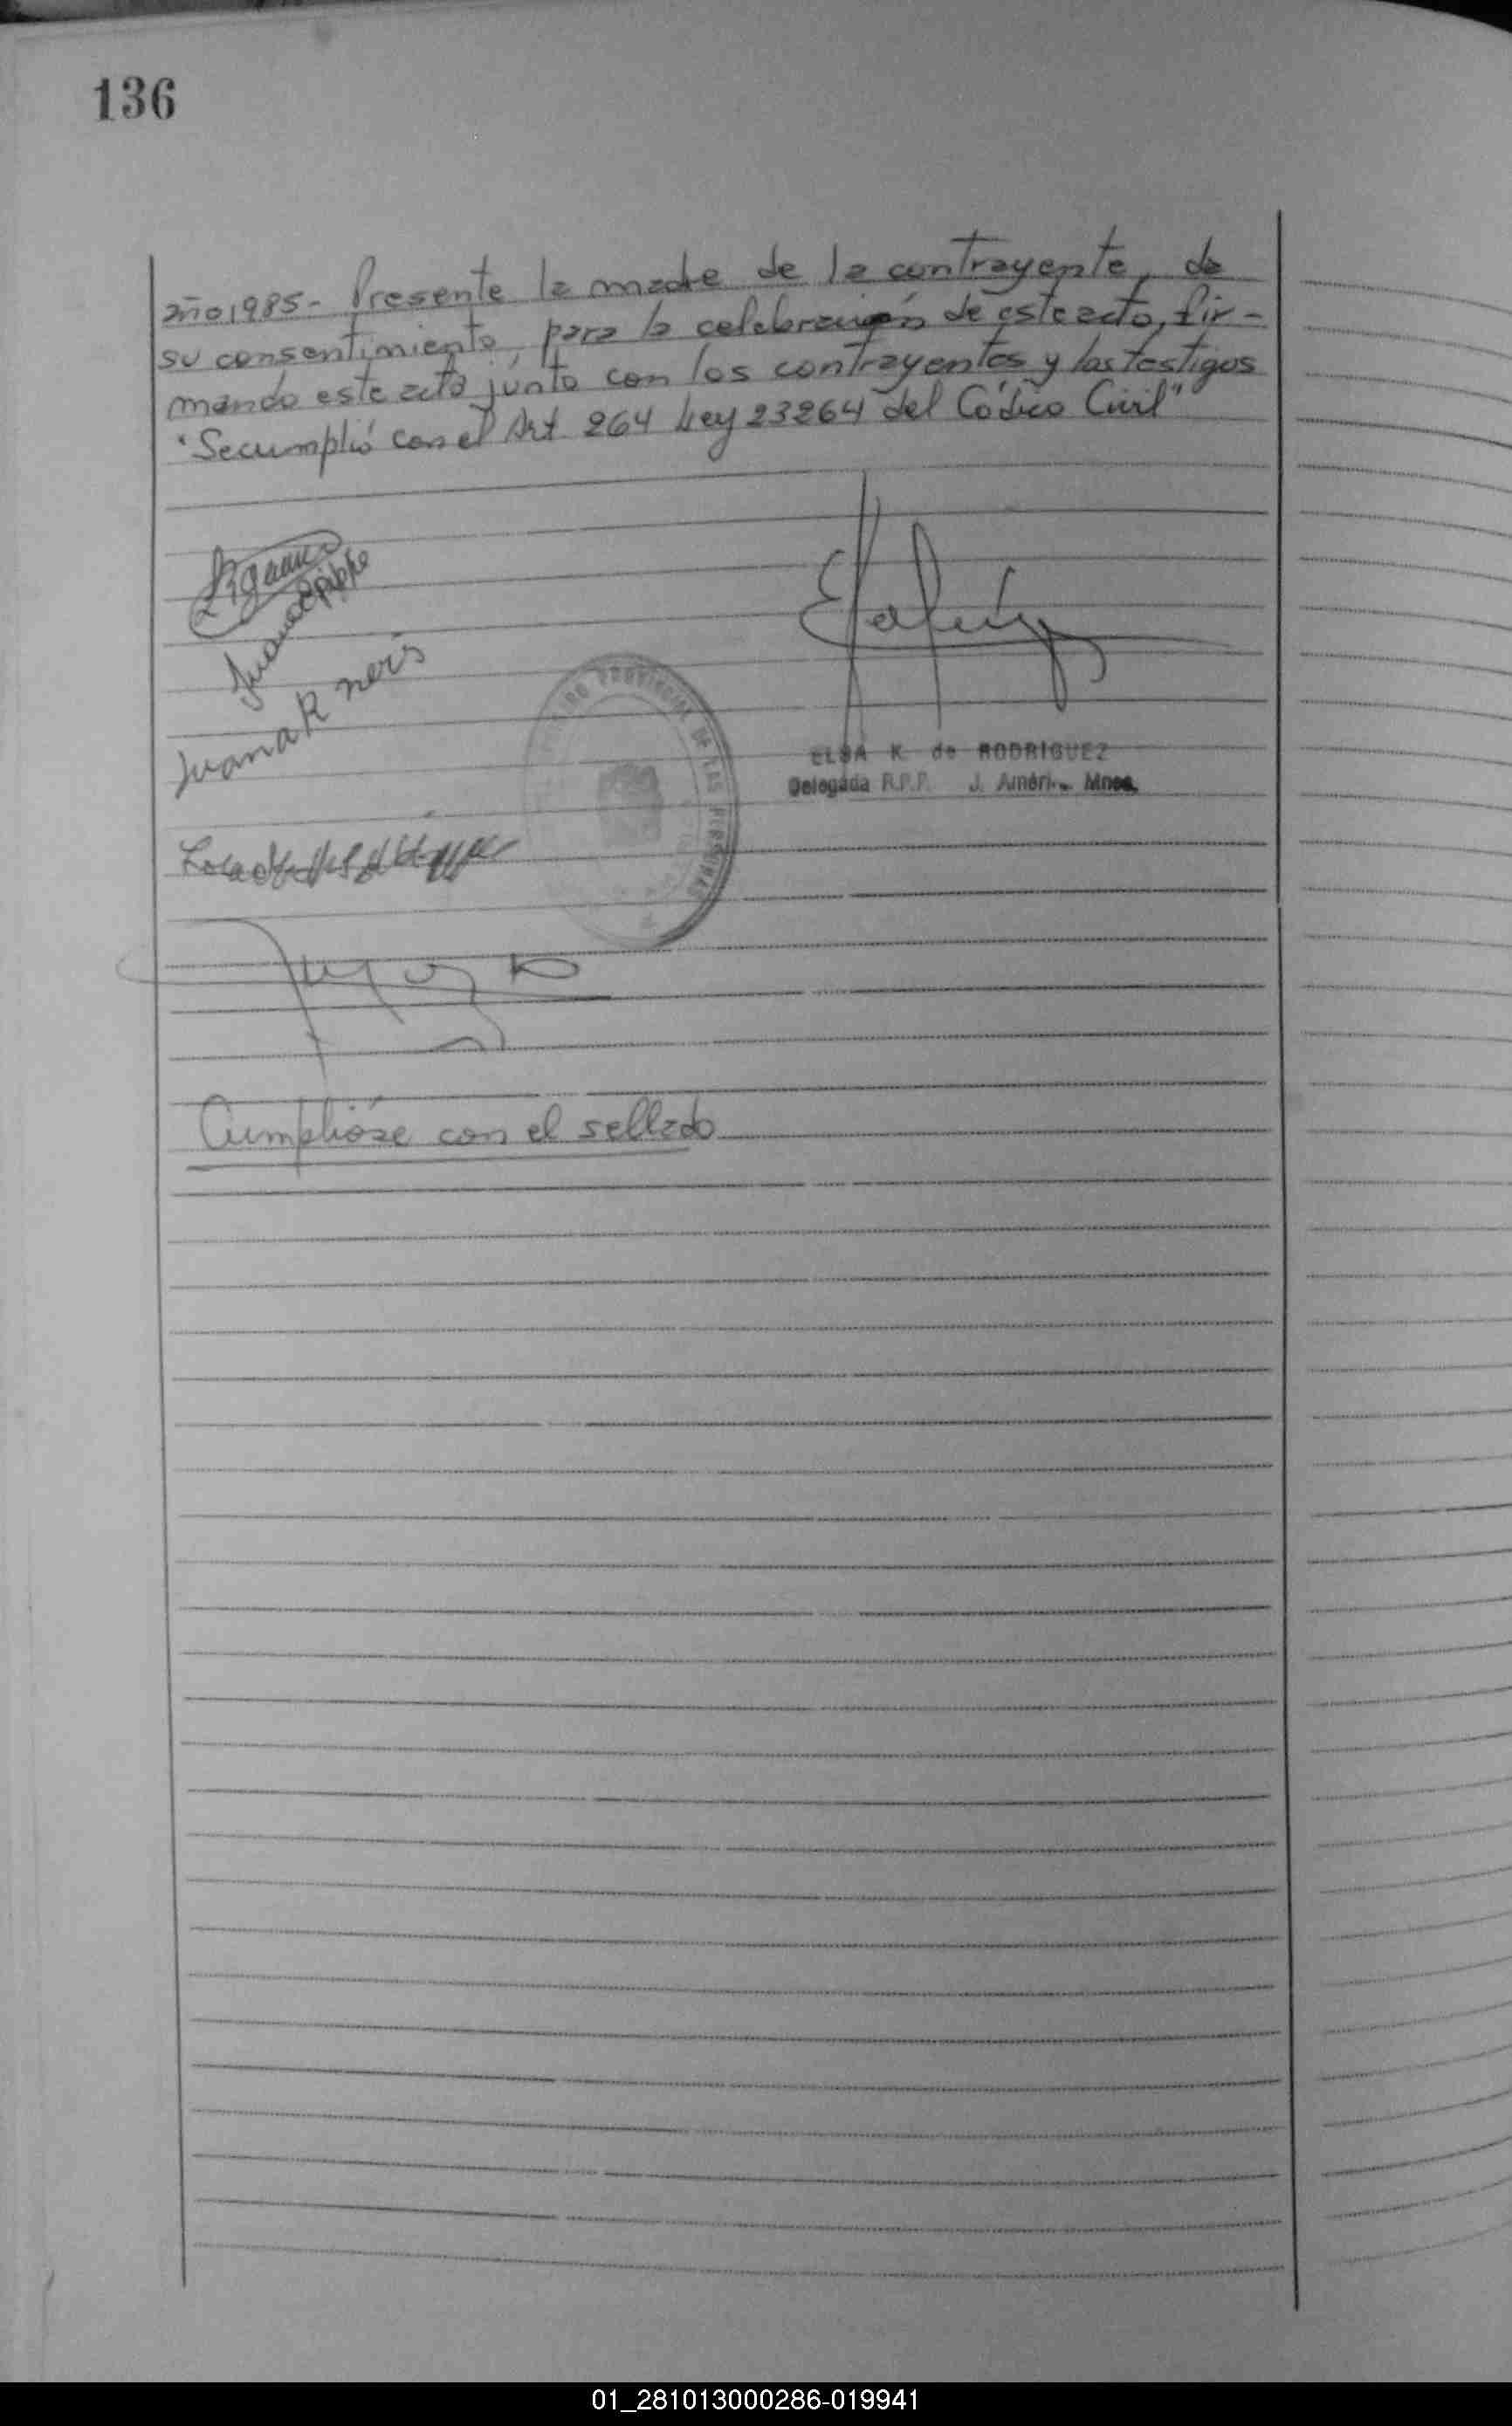 136
año 1985 - Presente la madre de la contrayente, da
su consentimiento, para la celebración de este acto, fir-
mando este acta junto con los contrayentes y los testigos
"Secumplió con el Art 264 Ley 23264 del Códico Civil"
Juana
Juana R neris
REGISTRO PROVINCIAL DE LAS PERSONAS
ELSA K de RODRIGUEZ
Delegada R.P.P. J. Améri.. Mnes.
Cumplióse con el sellado
01_281013000286-019941